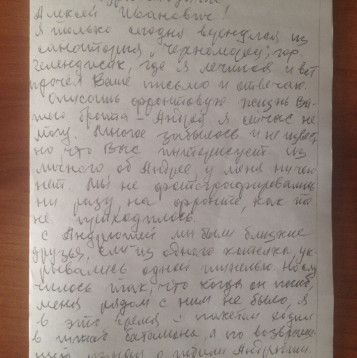 Алексей Иванович!
Я только сегодня вернулся из
санатория "Черноморец", гор.
Геленджик, где я лечился и вот
прочел Ваше письмо и отвечаю.
Описать фронтовую жизнь Ва-
шего брата – Андрея я сейчас не
могу. Многое забылось и не
что Вас интересует из
личного об Андрее, у меня ничего
нет мы не фотографировались
ни разу, на фронте, как то
не приходилось.
С Андрюшей мы были близкие
друзья, ели из одного котелка, ук-
рывались одной шинелью. Но слу-
чилось так, что когда он погиб,
меня рядом с ним не было, я
в это время с пакетом ходил
в штаб батальона, и по возвраще-
нии узнал о гибели Андрюши.